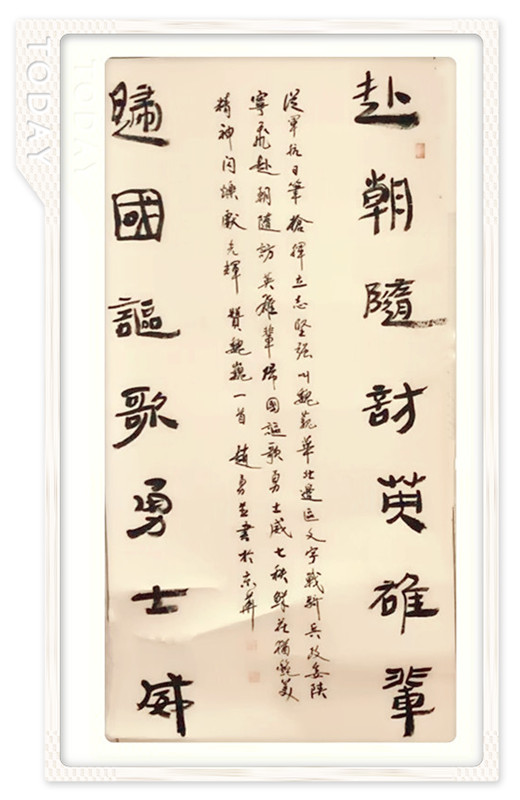 赴朝隨訪英雄輩
從軍抗日筆槍揮立志堅强叫魏巍華北邊區文字戰新兵政委陝
寧飛赴朝隨訪英雄輩歸國謳歌勇士威七秩鮮花猶艷美
精神闪爍献光輝 贊魏巍一首 趙勇並書於京華
歸國謳歌勇士威
TODAY
TODAY